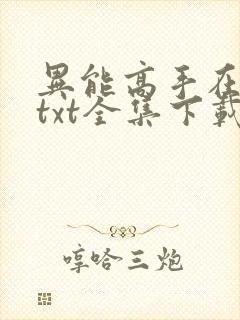 異能高手在
txt全集下載
哼哈三炮